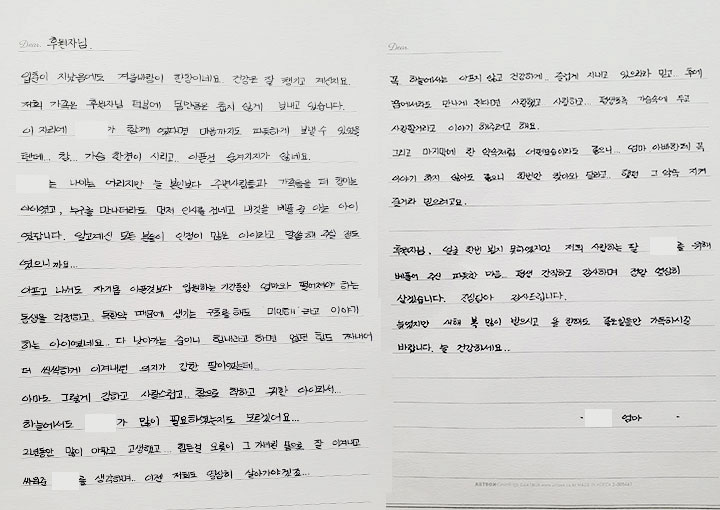 Dear. 후원자님.
입춘이 지났음에도 겨울바람이 한창이네요. 건강은 잘 챙기고 계신지요.
저희 가족은 후원자님 덕분에 몸만큼은 춥지 않게 보내고 있습니다.
이 자리에 가 함께 였다면 마음까지도 따뜻하게 보낼수 있었을
텐데... 참.. 가슴 한켠이 시리고.. 아픔선 숨겨지지가 않네요.
는 나이는 어리지만 늘 본인보다 주변사람들과 가족들을 더 챙기는
아이였고, 누구를 만나더라도 먼저 인사를 건네고 내것을 베풀 줄 아는 아이
였답니다. 알고계신 모든 분들이 인정이 많은 아이라고 말씀해 주실 정도
였으니까요...
아프고 나서도 자기몸 아픈것보다 입원하는 기간동안 엄마와 떨어져야 하는
동생을 걱정하고.. 독한약 때문에 생기는 구토를 해도 미안해 라고 이야기
하는 아이였네요.. 다 낫아가는 중이니 힘내라고 하면 없던 힘도 짜내어
더 씩씩하게 이겨내던 의지가 강한 딸이였는데...
아마도 그렇게 강하고 사랑스럽고.. 참으로 착하고 귀한 아이라서...
하늘에서도 가 많이 필요하셨는지도 모르겠어요...
2년동안 많이 아팠고 고생했고.. 힘든걸 오롯이 그 가녀린 몸으로 잘 이겨내고
싸워준 를 생각하며.. 이젠 저희도 열심히 살아가야겠죠...
Dear.
꼭 하늘에서는 아프지 않고 건강하게.. 즐겁게 지내고 있으리라 믿고.. 후에
꿈에서라도 만나게 된다면 사랑했고 사랑하고.. 평생토록 가슴속에 두고
사랑할거라고 이야기 해주려고 해요.
그리고 마지막에 한 약속처럼 어떤모습이라도 좋으니... 엄마 아빠한테 꼭
이야기 하지 않아도 좋으니 한번만 찾아와 달라고.. 했던 그 약속 지켜
줄거라 믿으려고요.
후원자님. 얼굴 한번 뵙지 못하였지만 저희 사랑하는 딸 를 위해
베풀어 주신 따뜻한 마음.. 평생 간직하고 감사하며 정말 열심히
살겠습니다. 감사드립니다.
늦었지만 새해 복 많이 받으시고 올 한해도 좋은일들만 가득하시길
바랍니다. 늘 건강하세요..
- 엄마 -